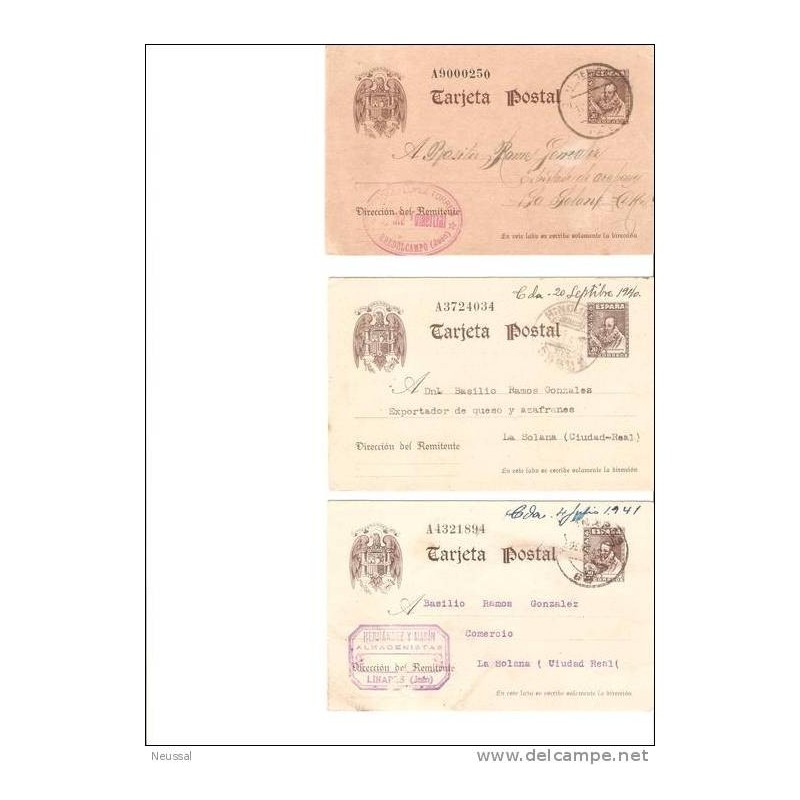 A9000250
Tarjeta Postal
A
Dirección del Remitente
(Jaén)
En este lado se escribe solamente la dirección
Cda - 20 Septbre 1940.
A3724034
ESPAÑA
Tarjeta Postal
A Dnl Basilio Ramos Gonzales
Exportador de queso y azafranes
La Solana (Ciudad-Real)
Dirección del Remitente
En este lado se escribe solamente la dirección
Cda - 4 Julio 1941
A4321894
Tarjeta Postal
A Basilio Ramos Gonzalez
Comercio
HERNANDEZ Y MARIN
ALMACENISTAS
La Solana ( Uiudad Real(
Dirección del Remitente
LINARES (Jaén)
En este lado se escribe solamente la dirección
Neussal
delcampe.net